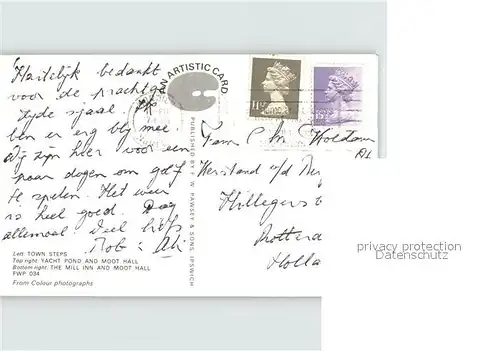 Hartelijk bedankt
voor de prachtige
zijde sjaal. Ik
ben er erg blij mee.
Wij zijn hier voor een
paar dagen om golf
te spelen. Het weer
is heel goed. Dag
allemaal veel liefs
Rob
Left: TOWN STEPS
Top right: YACHT POND AND MOOT HALL
Bottom right: THE MILL INN AND MOOT HALL
FWP 034
From Colour photographs
AN ARTISTIC CARD
PUBLISHED BY F. W. PAWSEY & SONS, IPSWICH
11½P
Fam
Hillegers
Rotterda
Holla
privacy protection
Datenschutz